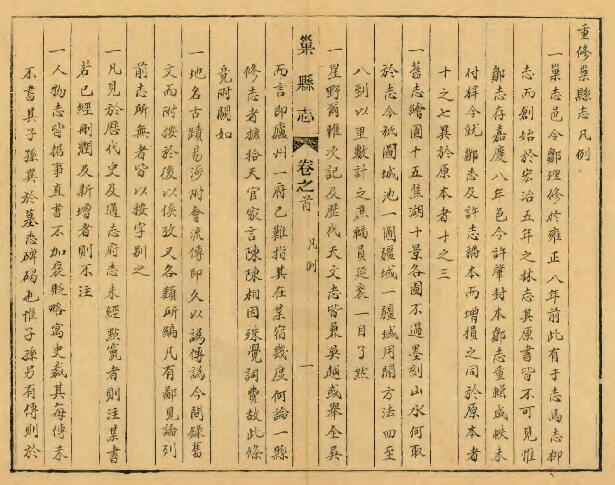 重修巢縣志凡例
一巢志邑令鄒理修於雍正八年前此有于志馬志柳
志而創始於宏治五年之林志其原書皆不可見惟
鄒志存嘉慶八年邑令許肇封本鄒志重輯成帙未
付梓今就鄒志及許志稿本而增損之同於原本者
十之七異於原本者十之三
一舊志繪圖十五焦湖十景各圖不過墨刻山水何取
於志今祗圖城池一圖疆域一疆域用開方法四至
八到以里數計之庶輻員延袤一目了然
一星野爾雅次記及歷代天文志皆兼吳越或舉全吳
巢縣志
卷之首
凡例
一
而言即廬州一府已難指其在某宿幾度何論一縣
修志者摭拾天官家言陳陳相因殊覺詞費故此條
竟附闕如
一地名古蹟易涉附會流傳即久以譌傳譌今間錄舊
文而附按於後以俟攷又各類所編凡有鄙見論列
前志所無者皆以按字別之
一凡見於歷代史及通志府志未經點竄者則注某書
若已經刪潤及新增者則不注
一人物志皆據事直書不加褒貶略寓史裁其每傳末
不書其子孫異於墓志碑碣也惟子孫另有傳則於